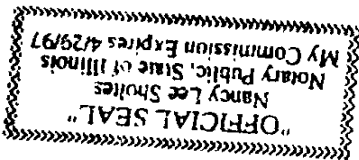 "OFFICIAL SEAL"
Nancy Lee Sholtes
Notary Public, State of Illinois
My Commission Expires 4/29/97